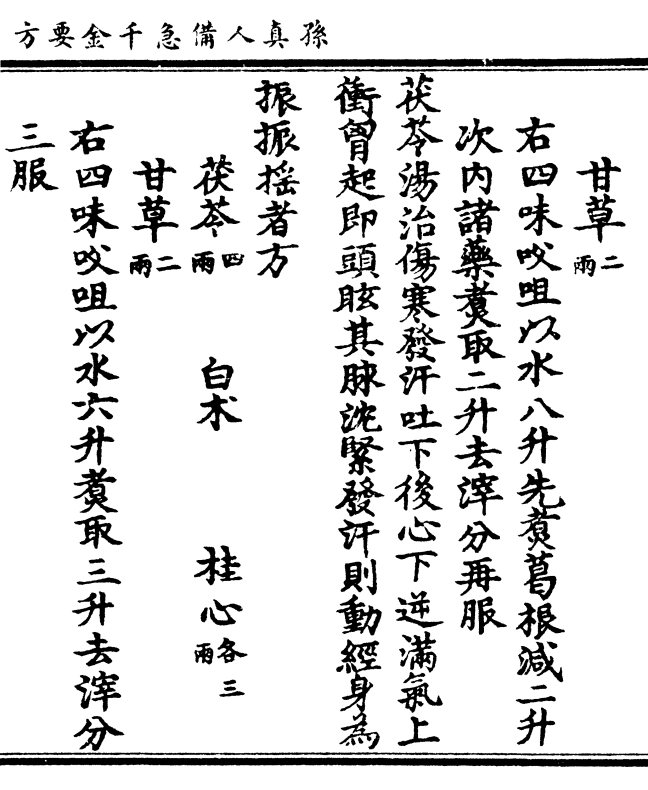 孫真人備急千金要方
甘草二兩
右四味㕮咀以水八升先煑葛根減二升
次内諸藥煑取二升去滓分再服
茯苓湯治傷寒發汗吐下後心下逆滿氣上
衝胷起即頭眩其脉沈緊發汗則動經身為
振振揺者方
茯苓四兩 白术 桂心各三兩
甘草二兩
右四味㕮咀以水六升煑取三升去滓分
三服